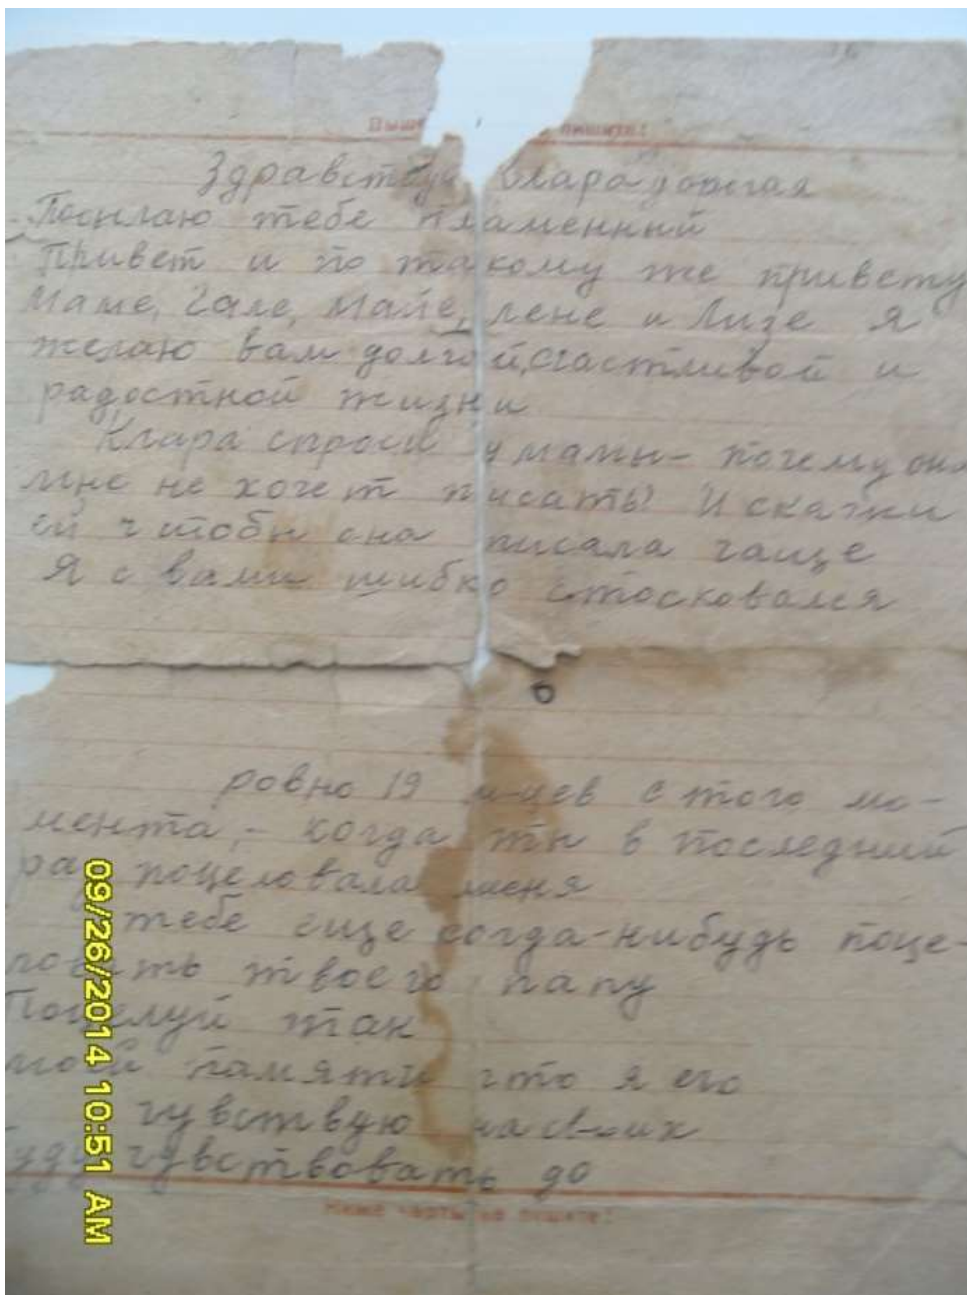 Выше пишите!
Здравствуй Клара дорогая
Посылаю тебе пламенный
Привет и по такому же привету
Маме, Гале, Майе, Лене и Лизе Я
желаю вам долгой, счастливой и
радостной жизни
Клара спроси у мамы - почему она
мне не хочет писать! И скажи
ей чтобы она писала чаще
Я с вами шибко стосковался
ровно 19 м-цев с того мо-
мента, - когда ты в последний
раз поцеловала меня
тебе еще когда-нибудь поце-
ловать твоего папу
Поцелуй так
моей памяти что я его
чувствую на своих
буду чувствовать до
Ниже черты не пишите!
09/26/2014 10:51 AM